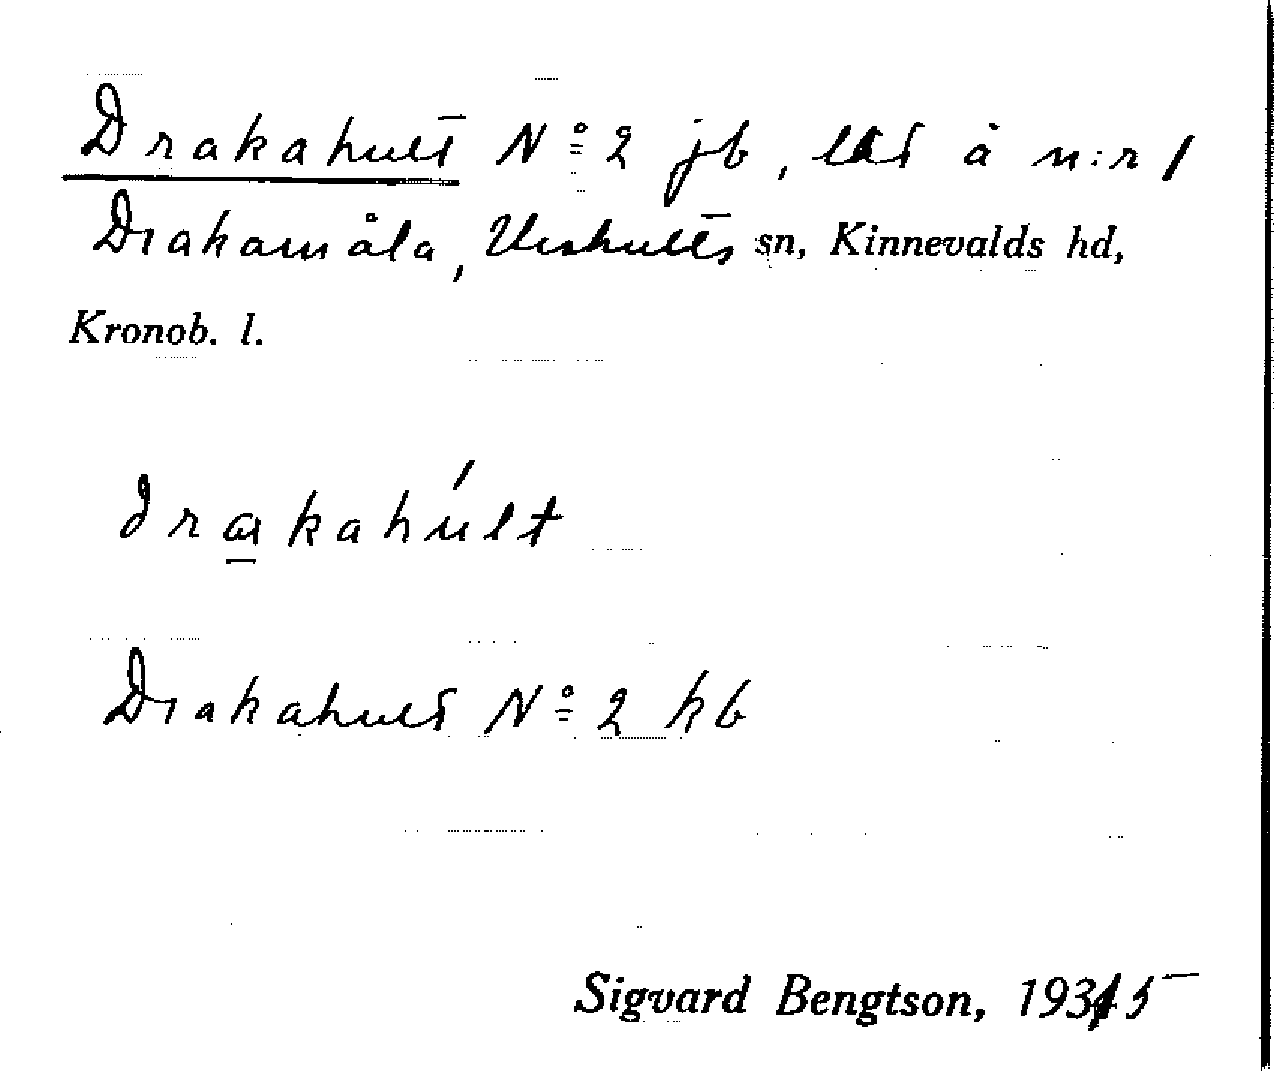 Drakahult Nº 2 jb, lht å n:r 1
Drakamåla, Urshults sn, Kinnevalds hd,
Kronob. l.
drakahúlt
Drakahult Nº 2 kb
Sigvard Bengtson, 1935